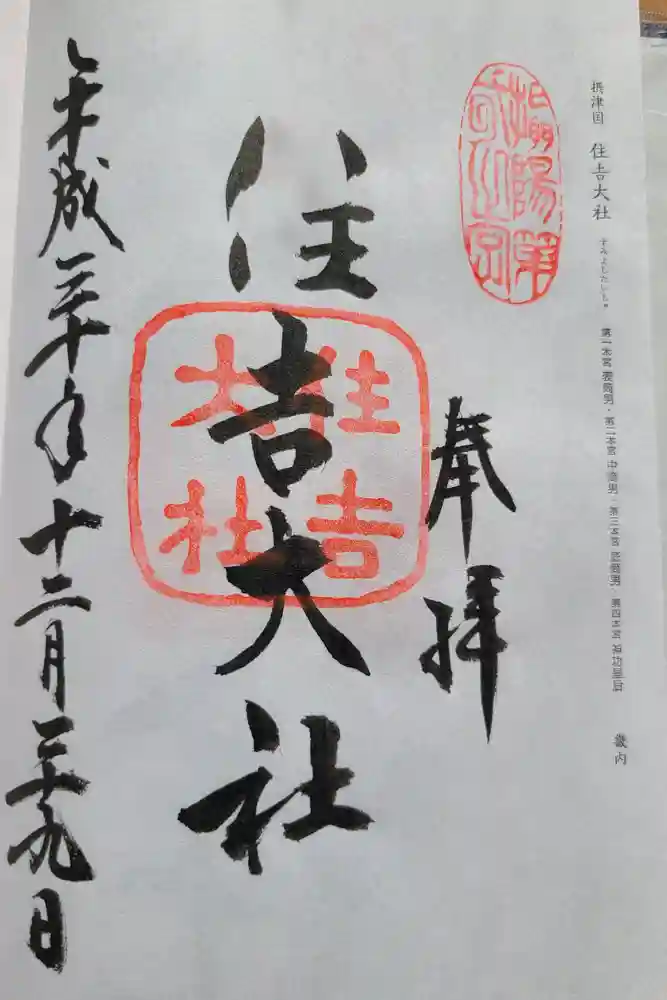 摂津国 住吉大社 すみよしたいしゃ 第一本宮 表筒男・第二本宮 中筒男・第三本宮 底筒男・第四本宮 神功皇后 畿内
奉拝
住吉大社
住吉
大社
平成三十年十二月二十九日